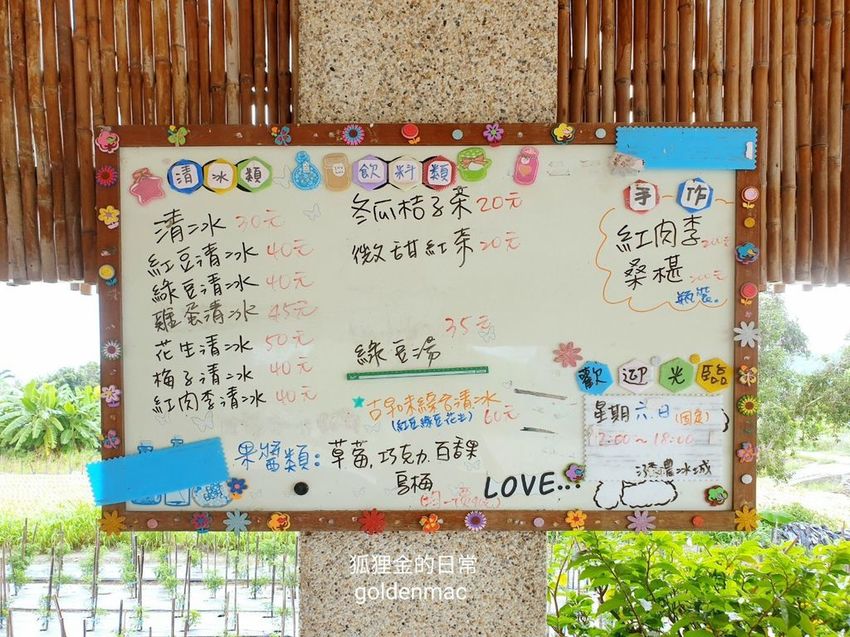 清冰類
清冰 30元
紅豆清冰 40元
綠豆清冰 40元
雞蛋清冰 45元
花生清冰 50元
梅子清冰 40元
紅肉李清冰 40元
飲料類
冬瓜桔子茶 20元
微甜紅茶 20元
綠豆湯 35元
古早味綜合清冰 60元
(紅豆綠豆花生)
果醬類:草莓,巧克力,百香果
烏梅
LOVE...
手作
紅肉李
桑椹
瓶裝
歡迎光臨
星期六.日(固定)
18:00
狐狸金的日常
goldenmac